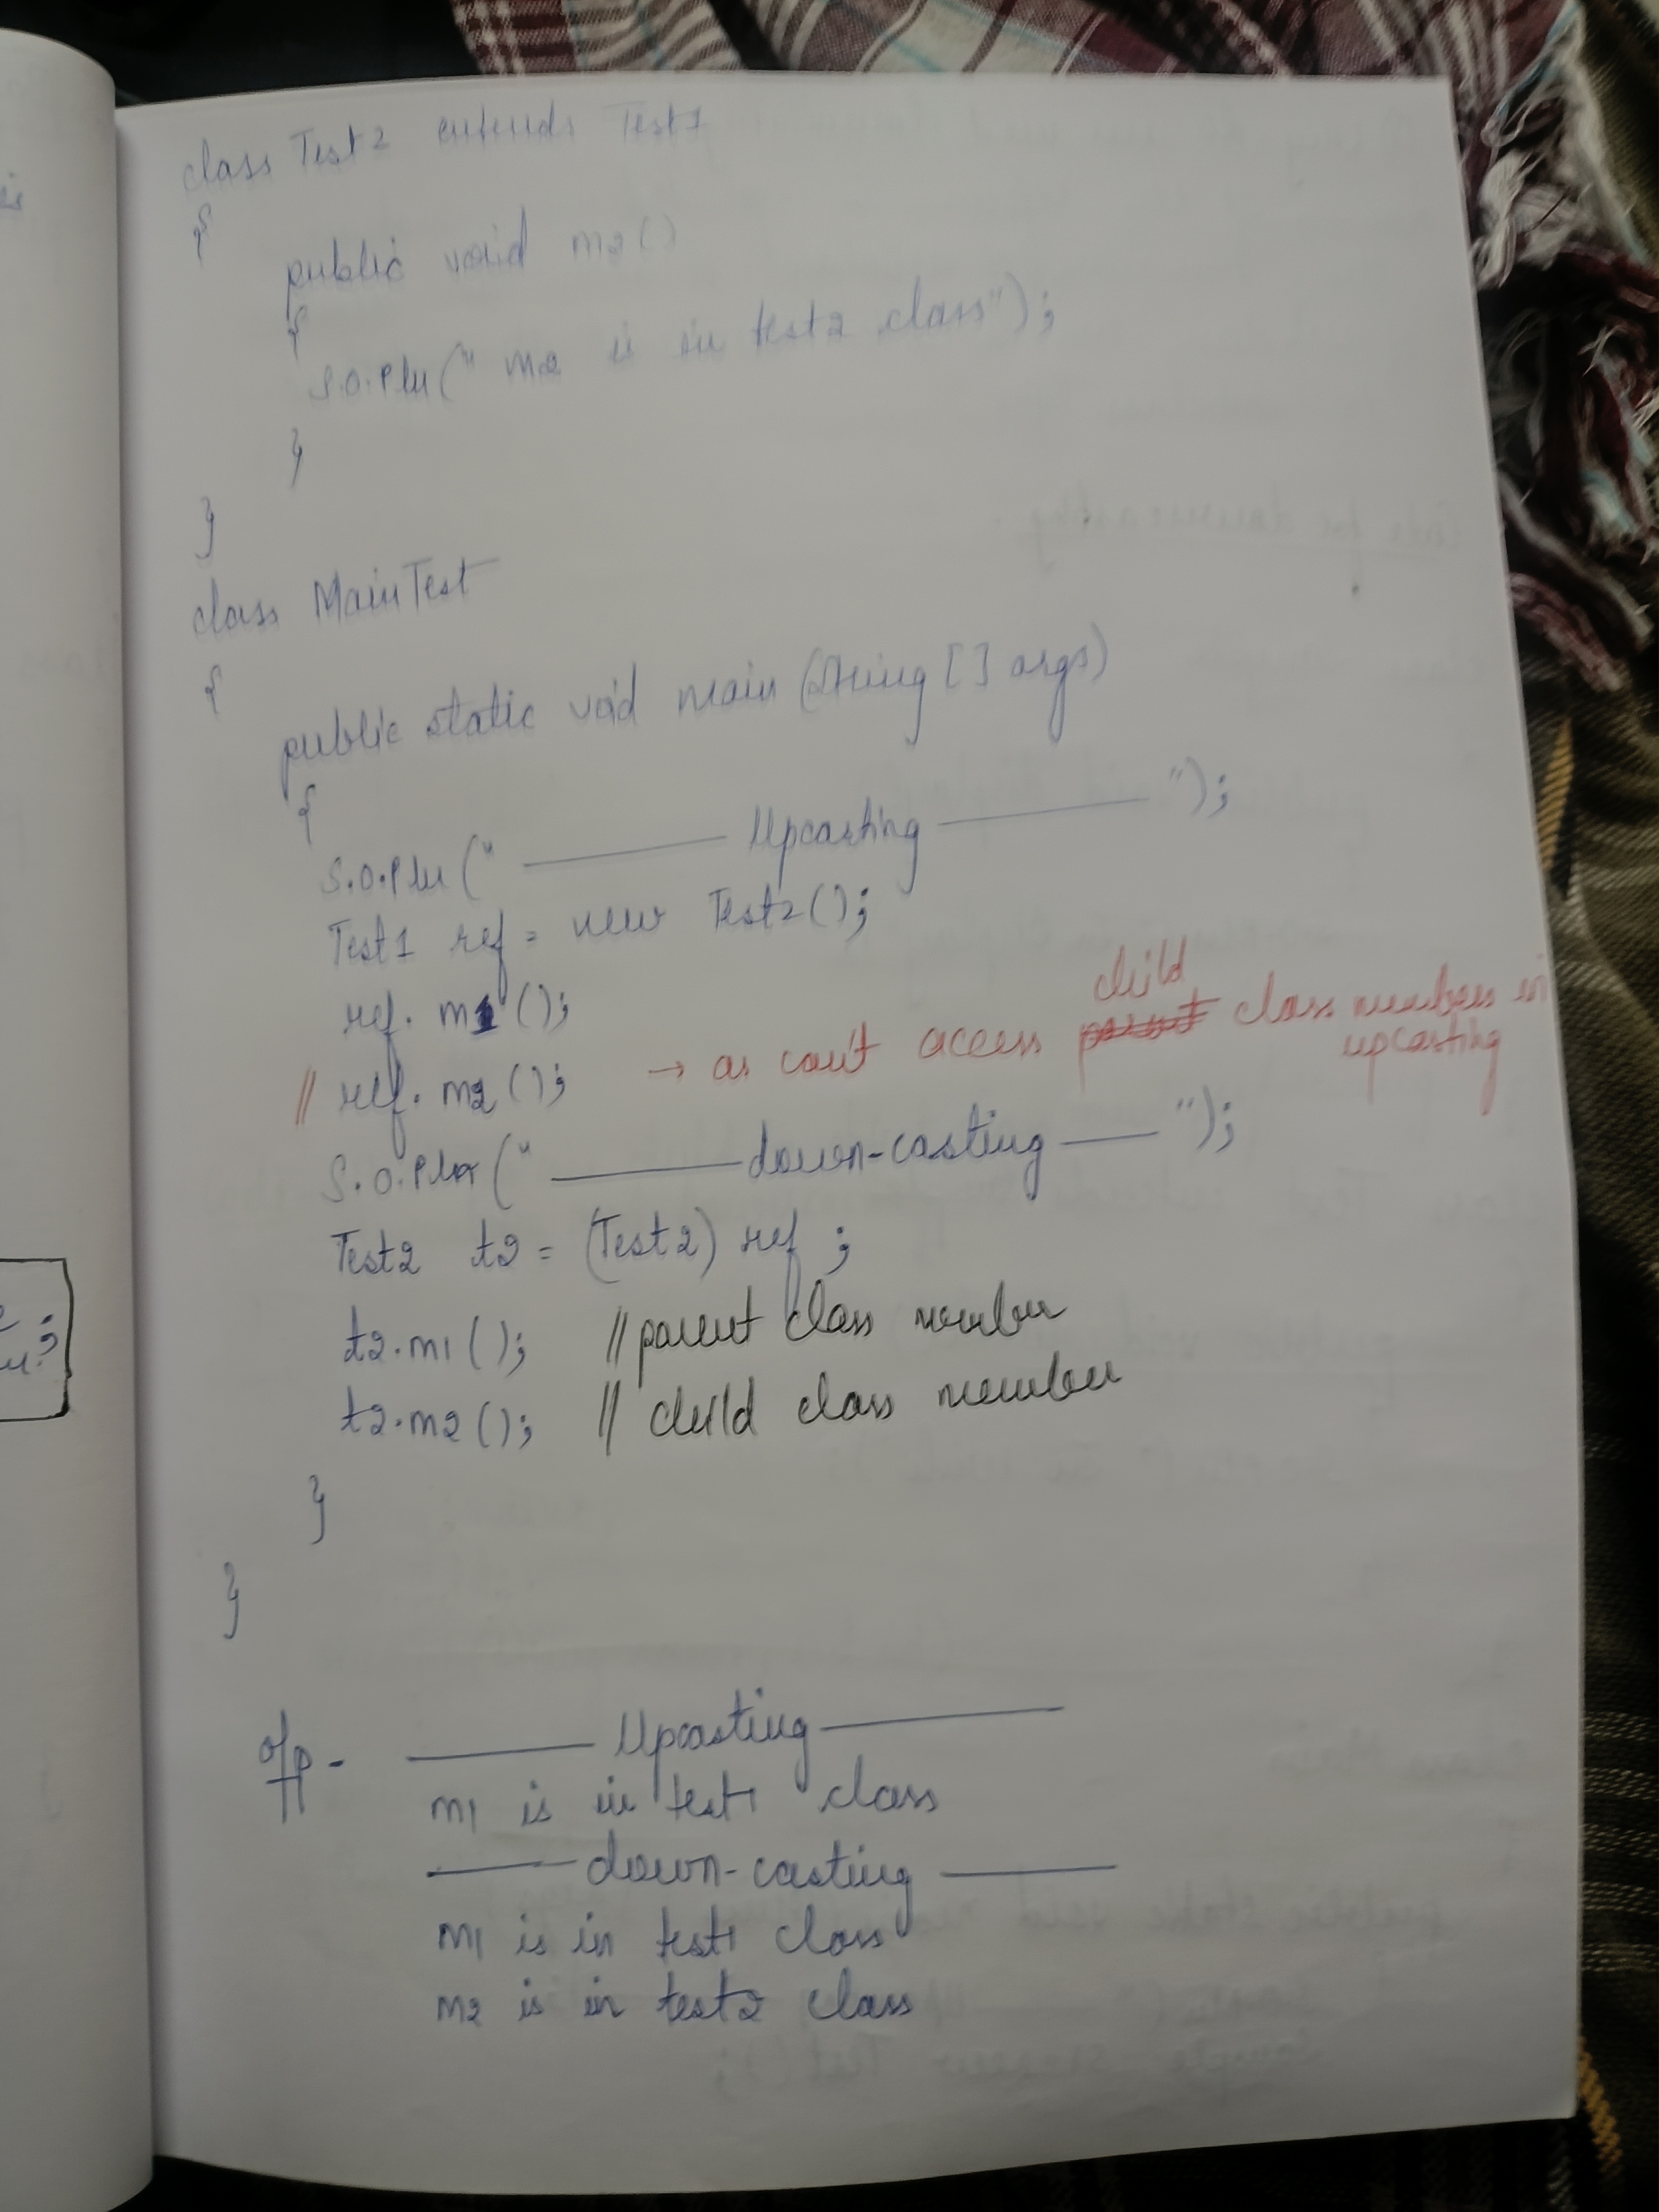 class Test2 extends Test1
{
public void m2()
{
S.O.Pln(" m2 is in test2 class");
}
}
class MainTest
{
public static void main (String [] args)
{
S.O.Pln (" ——— Upcasting ——— ");
Test1 ref = new Test2();
ref. m1 ();
// ref. m2 (); → as can't access child class members in upcasting
S.O.Pln (" ——— down-casting — ");
Test2 t2 = (Test2) ref ;
t2.m1 (); // parent class member
t2.m2 (); // child class member
}
}
o/p - ——— Upcasting ———
m1 is in test1 class
—— down-casting ——
m1 is in test1 class
m2 is in test2 class